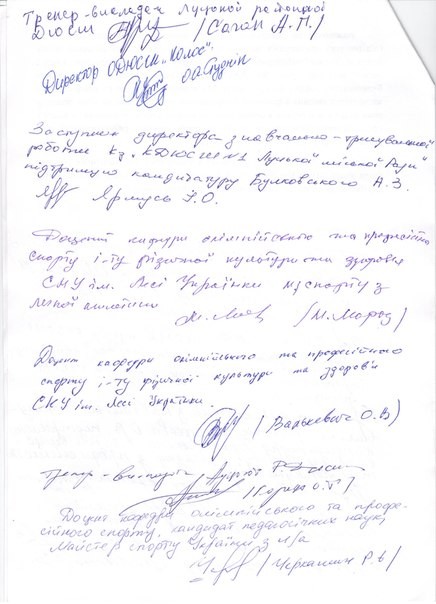 Тренер-викладач Луцької районної
ДЮСШ / Саган А.П. /
Директор ОДЮСШ "Колос"
О.А. Студнік
Заступник директора з навчально-тренувальної
роботи КЗ "КДЮСШ №1 Луцької міської Ради"
підтримую кандидатуру Булковського А.З.
Ярмусь
Доцент кафедри олімпійського та професійного
спорту і-ту фізичної культури та здоров'я
СНУ ім. Лесі Українки мс спорту з
легкої атлетики
/М. Мороз/
Доцент кафедри олімпійського та професійного
спорту і-ту фізичної культури та здоров'я
СНУ ім. Лесі Українки.
/ Валькевич О.В)
тренер-викладач
Доцент кафедри олімпійського та профе-
сійного спорту, кандидат педагогічних наук,
Майстер спорту України з л/а
/ Черкашин Р.Є /